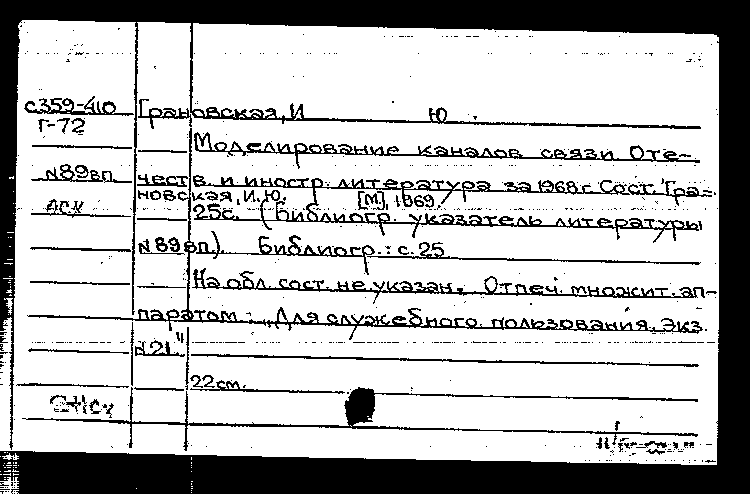 с359-410
Г-72
Грановская, И Ю .
Моделирование каналов связи Оте-
№89вп.
честв. и иностр. литература за 1968г. Сост. Гра=
новская, И.Ю. [М], 1969.
25с. (Библиогр. указатель литературы
№89вп.). Библиогр.: с. 25
На обл. сост. не указан. Отпеч. множит. ап-
паратом: „Для служебного пользования. Экз.
№21."
22см.